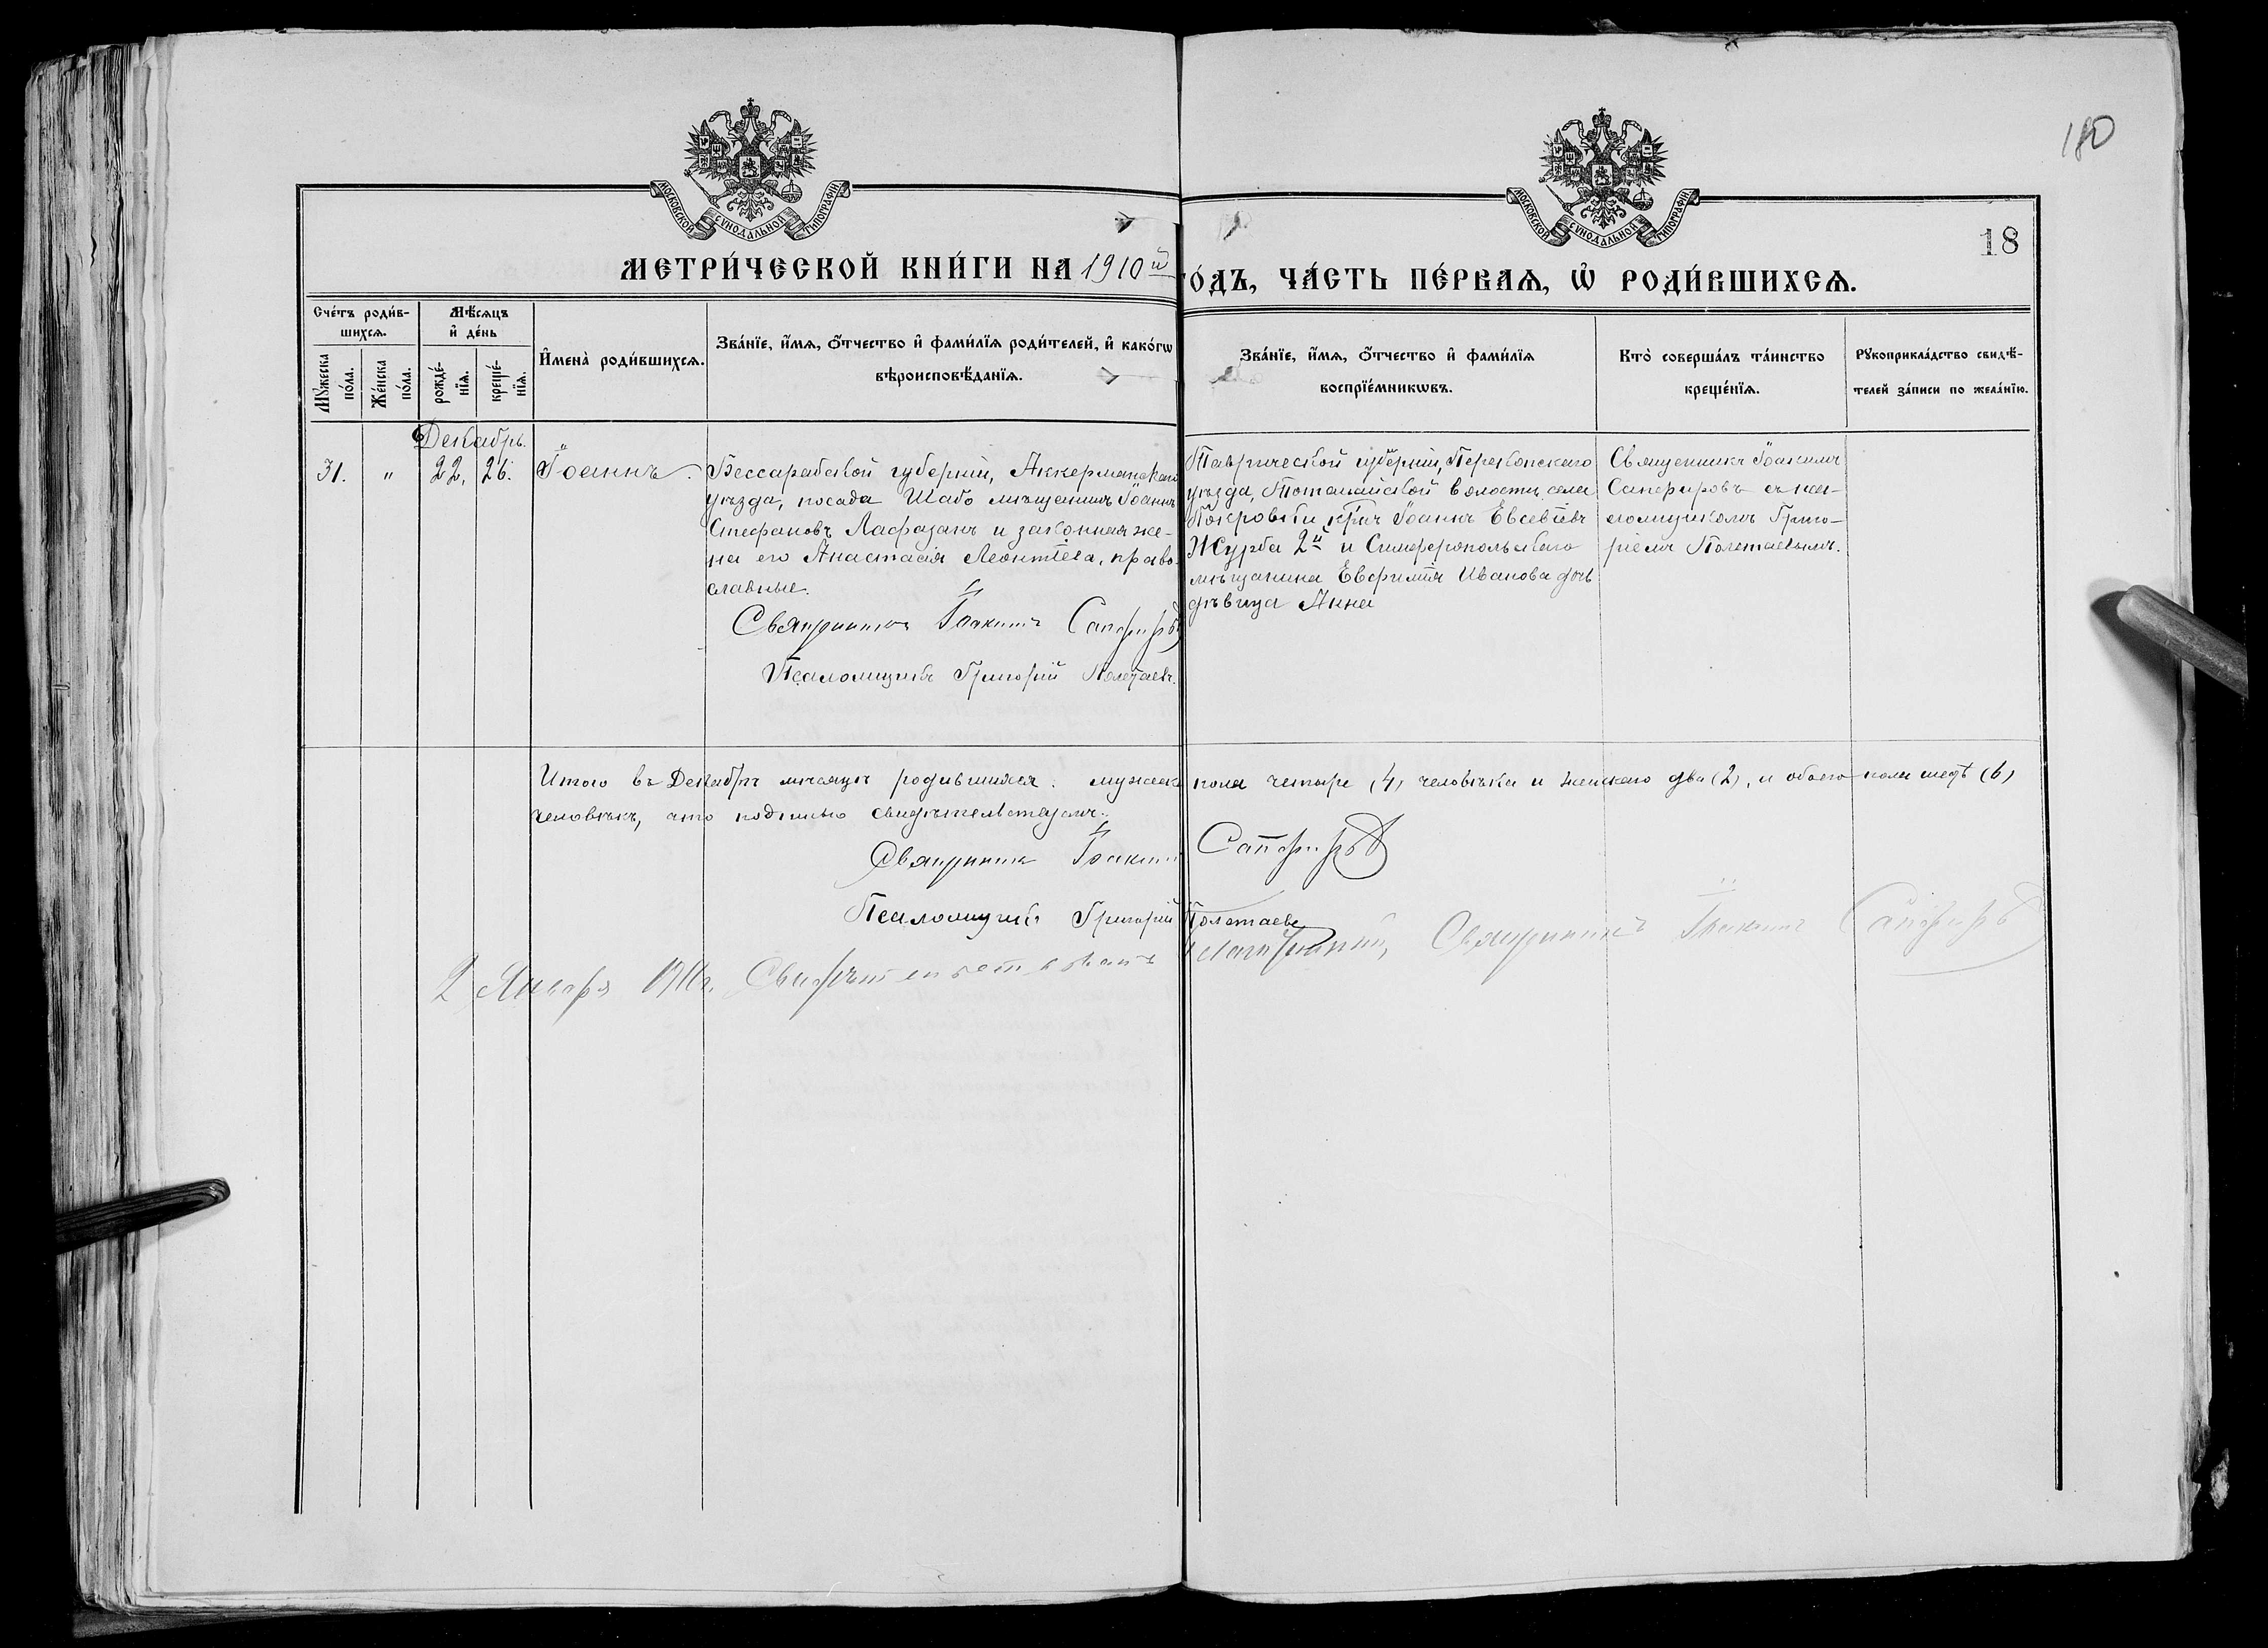 180
18
МОСКОВСКОЙ СѴНОДАЛЬНОЙ ТИПОГРАФІИ
МОСКОВСКОЙ СѴНОДАЛЬНОЙ ТИПОГРАФІИ
МЕТРИ́ЧЕСКОЙ КНИ́ГИ НА 1910й
ГО́ДЪ, ЧА́СТЬ ПЕ́РВАѦ, Ѡ҆ РОДИ́ВШИХСѦ.
Сче́тъ роди́в-
шихсѧ.
Мꙋ́жеска по́ла.
Же́нска по́ла.
Мѣ́сѧцъ
и҆ де́нь
рожде́-
нїѧ.
креще́-
нїѧ.
И҆мена̀ роди́вшихсѧ.
Зва́нїе, и҆́мѧ, ѻ҆́тчество и҆ фами́лїѧ роди́телей, и҆ како́гѡ
вѣроисповѣ́данїѧ.
Зва́нїе, и҆́мѧ, ѻ҆́тчество и҆ фами́лїѧ
воспрїе́мникѡвъ.
Кто̀ соверша́лъ та́инство
креще́нїѧ.
Рꙋкоприкла́дство свидѣ́-
телей за́писи по жела́нїю.
Декабрь.
31. " 22. 26. Іоаннъ.
Бессарабской губерніи, Аккерманскаго
уѣзда, посада Шабо мѣщанинъ Іоаннъ
Стефановъ Лафазанъ и законная же-
на его Анастасія Леонтіева, право-
славные.
Священникъ Іоакимъ Сапфировъ
Псаломщикъ Григорій Полетаевъ.
Таврической губерніи, Перекопскаго
уѣзда, Тотанайской волости села
Покровки кр-нъ Іоаннъ Евсевіевъ
Журба 2й и Симферопольскаго
мѣщанина Евфимія Иванова дочь
дѣвица Анна
Священникъ Іоакимъ
Сапфировъ съ пса-
ломщикомъ Григо-
ріемъ Полетаевымъ.
Итого въ Декабрѣ мѣсяцѣ родившихся: мужска пола четыре (4) человѣка и женскаго два (2), и обоего пола шесть (6)
человѣкъ, что подписью свидѣтельствуемъ:
Священникъ Іоакимъ Сапфировъ
Псаломщикъ Григорій Полетаевъ
2 Января 1911г. Свидѣтельствовалъ Благочинный, Священникъ Іоакимъ Сапфировъ